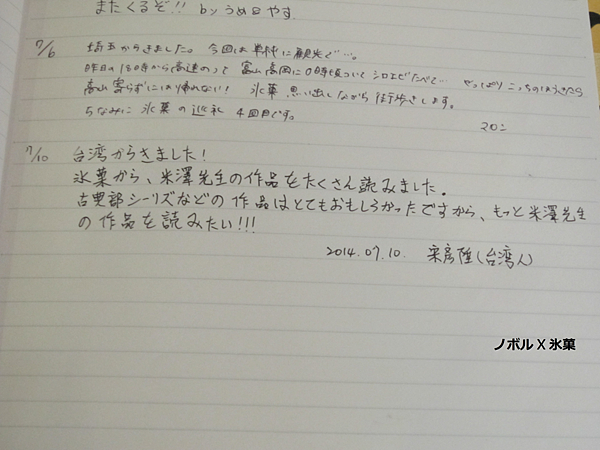 またくるぞ!! by うめ@やす.
7/6 埼玉からきました。今回は単純に観光で…。
昨日の18時から高速のって 富山高岡に0時頃ついて シロエビたべて… やっぱりこっちのほうきたら
高山寄らずには帰れない! 氷菓 思い出しながら 街歩きします。
ちなみに 氷菓 の 巡礼 4回目です。
7/10 台湾からきました!
氷菓から、米澤先生の作品をたくさん読みました.
古典部シーリズなどの作品はとてもおもしろかったですから、もっと米澤先生
の作品を読みたい!!!
2014.07.10. (台湾人)
ノボル X 氷菓